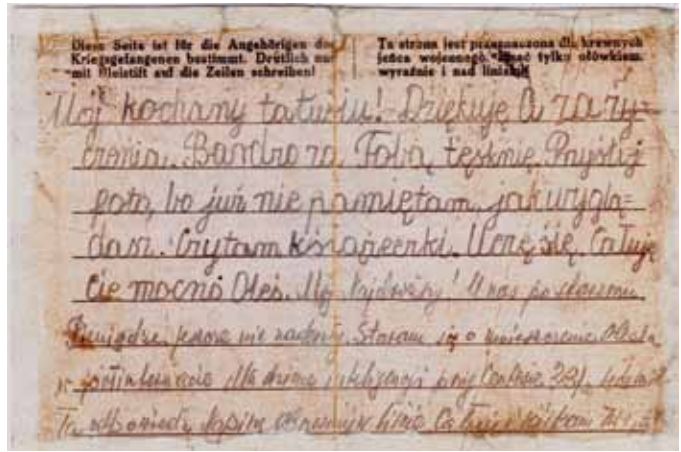 Diese Seite ist für die Angehörigen des
Kriegsgefangenen bestimmt. Deutlich nur
mit Bleistift auf die Zeilen schreiben!
Ta strona jest przeznaczona dla krewnych
jeńca wojennego. Pisać tylko ołówkiem,
wyraźnie i nad linią
Mój kochany tatusiu! Dziękuję Ci za ży-
czenia. Bardzo za Tobą tęsknię. Przyślij
foto, bo już nie pamiętam, jak wyglą=
dasz. Czytam książeczki. Uczę się. Całuję
Cię mocno Oleś. Mój Najdroższy! U nas po staremu
Pieniądze jeszcze nie nadeszły. Staram się o umieszczenie
w dla inteligencji przy
Ta